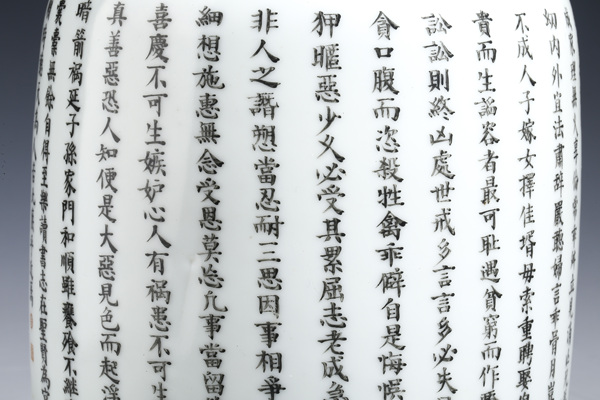 幼內外宜法肅辭嚴聽婦言乖骨肉豈
不成人子嫁女擇佳壻毋索重聘娶
貴而生諂容者最可恥遇貧窮而作
訟訟則終凶處世戒多言言多必失
貪口腹而恣殺牲禽乖僻自是悔悞
狎暱惡少久必受其累屈志老成急
非人之譖愬當忍耐三思因事相爭
細想施惠無念受恩莫忘凡事當留
喜慶不可生嫉妒心人有禍患不可生
真善惡恐人知便是大惡見色而起淫
暗箭禍延子孫家門和順雖饔飧不繼
囊橐無餘自得至樂讀書志在聖賢為官